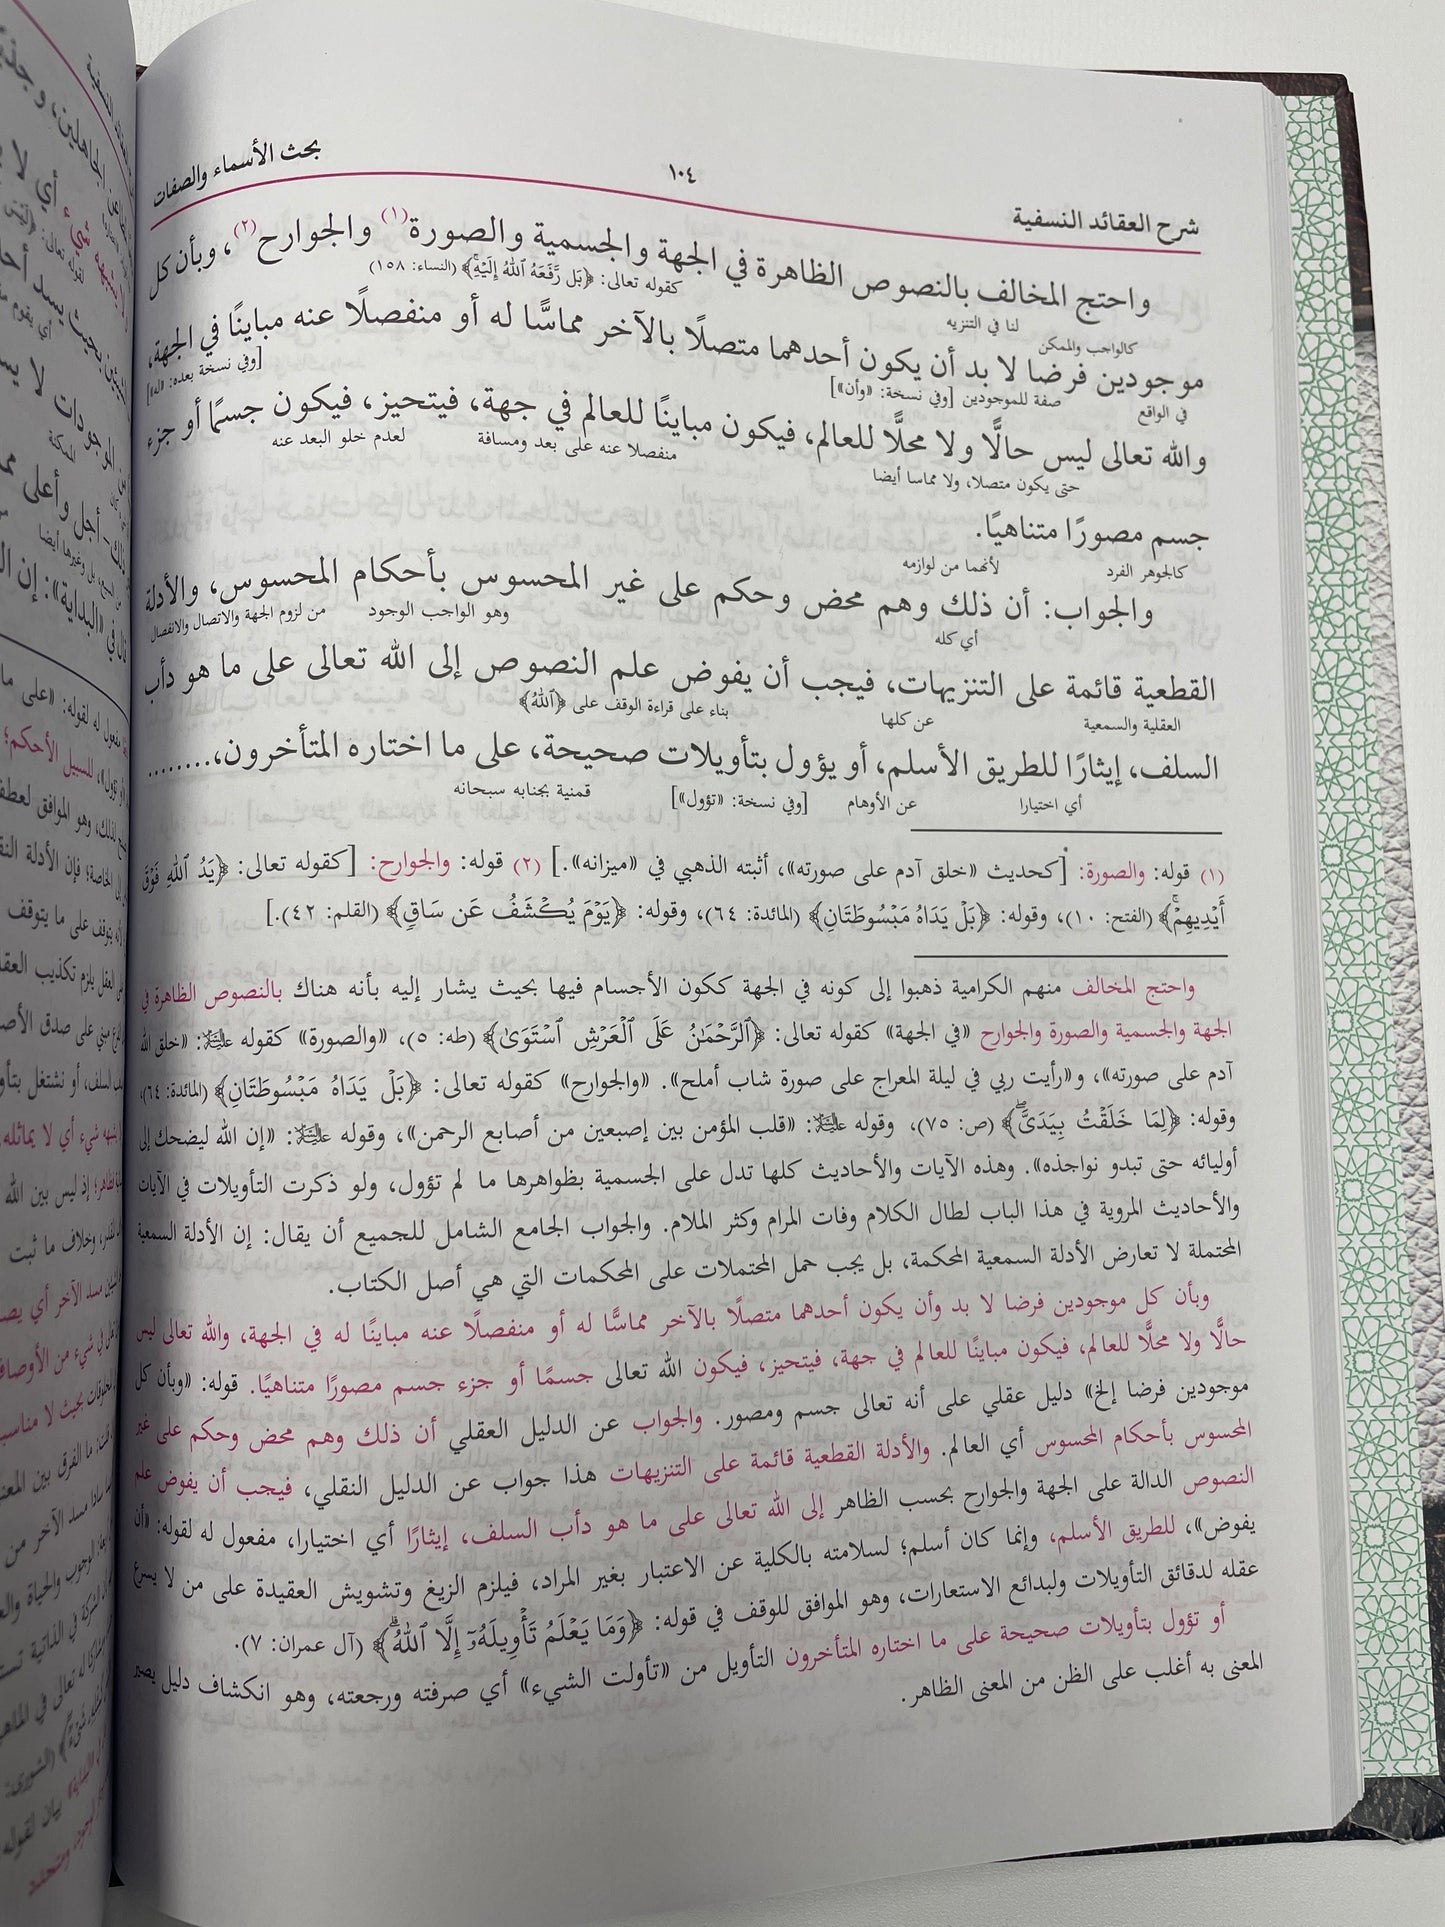 شرح العقائد النسفية ١٠٤ بحث الأسماء والصفات
واحتج المخالف بالنصوص الظاهرة في الجهة والجسمية والصورة(١) والجوارح(٢)، وبأن كل
لنا في التنزيه كقوله تعالى: ﴿بَل رَّفَعَهُ ٱللَّهُ إِلَيْهِ﴾ (النساء: ١٥٨)
كالواجب والممكن
موجودين فرضا لا بد أن يكون أحدهما متصلًا بالآخر مماسًّا له أو منفصلًا عنه مباينًا في الجهة،
في الواقع صفة للموجودين [وفي نسخة: «وأن»] [وفي نسخة بعده: «له»]
والله تعالى ليس حالًّا ولا محلًّا للعالم، فيكون مباينًا للعالم في جهة، فيتحيز، فيكون جسمًا أو جزء
حتى يكون متصلا، ولا مماسا أيضا منفصلا عنه على بعد ومسافة لعدم خلو البعد عنه
جسم مصورًا متناهيًا.
كالجوهر الفرد لأنهما من لوازمه
والجواب: أن ذلك وهم محض وحكم على غير المحسوس بأحكام المحسوس، والأدلة
أي كله وهو الواجب الوجود من لزوم الجهة والاتصال والانفصال
القطعية قائمة على التنزيهات، فيجب أن يفوض علم النصوص إلى الله تعالى على ما هو دأب
العقلية والسمعية عن كلها بناء على قراءة الوقف على ﴿ٱللَّهُ﴾
السلف، إيثارًا للطريق الأسلم، أو يؤول بتأويلات صحيحة، على ما اختاره المتأخرون،........
أي اختيارا عن الأوهام [وفي نسخة: «تؤول»] قمنية بجنابه سبحانه
(١) قوله: والصورة: [كحديث «خلق آدم على صورته»، أثبته الذهبي في «ميزانه».] (٢) قوله: والجوارح: [كقوله تعالى: ﴿يَدُ ٱللَّهِ فَوْقَ
أَيْدِيهِمْ﴾ (الفتح: ١٠)، وقوله: ﴿بَلْ يَدَاهُ مَبْسُوطَتَانِ﴾ (المائدة: ٦٤)، وقوله: ﴿يَوْمَ يُكْشَفُ عَن سَاقٍ﴾ (القلم: ٤٢).]
واحتج المخالف منهم الكرامية ذهبوا إلى كونه في الجهة ككون الأجسام فيها بحيث يشار إليه بأنه هناك بالنصوص الظاهرة في
الجهة والجسمية والصورة والجوارح «في الجهة» كقوله تعالى: ﴿ٱلرَّحْمَٰنُ عَلَى ٱلْعَرْشِ ٱسْتَوَىٰ﴾ (طه: ٥)، «والصورة» كقوله عليه السلام: «خلق الله
آدم على صورته»، و«رأيت ربي في ليلة المعراج على صورة شاب أملح». «والجوارح» كقوله تعالى: ﴿بَلْ يَدَاهُ مَبْسُوطَتَانِ﴾ (المائدة: ٦٤)،
وقوله: ﴿لِمَا خَلَقْتُ بِيَدَىَّ﴾ (ص: ٧٥)، وقوله عليه السلام: «قلب المؤمن بين إصبعين من أصابع الرحمن»، وقوله عليه السلام: «إن الله ليضحك إلى
أوليائه حتى تبدو نواجذه». وهذه الآيات والأحاديث كلها تدل على الجسمية بظواهرها ما لم تؤول، ولو ذكرت التأويلات في الآيات
والأحاديث المروية في هذا الباب لطال الكلام وفات المرام وكثر الملام. والجواب الجامع الشامل للجميع أن يقال: إن الأدلة السمعية
المحتملة لا تعارض الأدلة السمعية المحكمة، بل يجب حمل المحتملات على المحكمات التي هي أصل الكتاب.
وبأن كل موجودين فرضا لا بد وأن يكون أحدهما متصلًا بالآخر مماسًّا له أو منفصلًا عنه مباينًا له في الجهة، والله تعالى ليس
حالًّا ولا محلًّا للعالم، فيكون مباينًا للعالم في جهة، فيتحيز، فيكون الله تعالى جسمًا أو جزء جسم مصورًا متناهيًا. قوله: «وبأن كل
موجودين فرضا إلخ» دليل عقلي على أنه تعالى جسم ومصور. والجواب عن الدليل العقلي أن ذلك وهم محض وحكم على غير
المحسوس بأحكام المحسوس أي العالم. والأدلة القطعية قائمة على التنزيهات هذا جواب عن الدليل النقلي، فيجب أن يفوض علم
النصوص الدالة على الجهة والجوارح بحسب الظاهر إلى الله تعالى على ما هو دأب السلف، إيثارًا أي اختيارا، مفعول له لقوله: «أن
يفوض»، للطريق الأسلم، وإنما كان أسلم؛ لسلامته بالكلية عن الاعتبار بغير المراد، فيلزم الزيغ وتشويش العقيدة على من لا يسرع
عقله لدقائق التأويلات ولبدائع الاستعارات، وهو الموافق للوقف في قوله: ﴿وَمَا يَعْلَمُ تَأْوِيلَهُۥٓ إِلَّا ٱللَّهُ﴾ (آل عمران: ٧).
أو تؤول بتأويلات صحيحة على ما اختاره المتأخرون التأويل من «تأولت الشيء» أي صرفته ورجعته، وهو انكشاف دليل يصير
المعنى به أغلب على الظن من المعنى الظاهر.